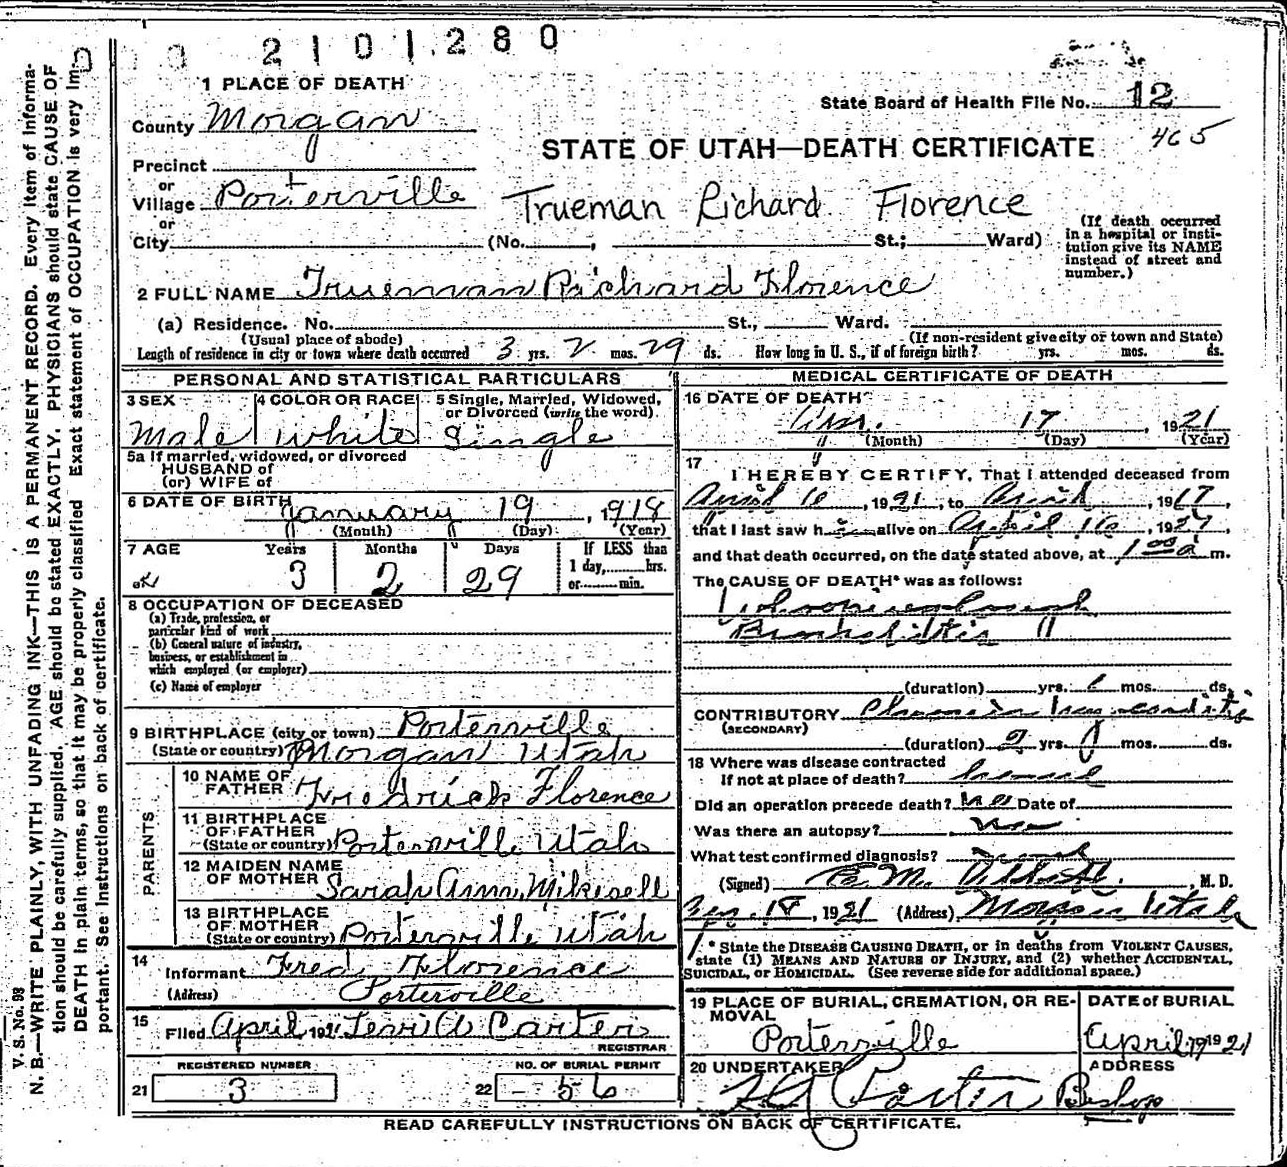 0 0 2101280
1 PLACE OF DEATH
State Board of Health File No. 12
County Morgan
465
STATE OF UTAH—DEATH CERTIFICATE
Precinct
or
Village Porterville
Trueman Richard Florence
or
City (No. , St.; Ward)
(If death occurred in a hospital or institution give its NAME instead of street and number.)
2 FULL NAME Trueman Richard Florence
(a) Residence. No. St., Ward.
(Usual place of abode) (If non-resident give city or town and State)
Length of residence in city or town where death occurred 3 yrs. 2 mos. 29 ds. How long in U. S., if of foreign birth? yrs. mos. ds.
PERSONAL AND STATISTICAL PARTICULARS
3 SEX 4 COLOR OR RACE 5 Single, Married, Widowed,
or Divorced (write the word).
Male white Single
5a If married, widowed, or divorced
HUSBAND of
(or) WIFE of
6 DATE OF BIRTH
January 19, 1918
(Month) (Day) (Year)
7 AGE Years Months Days If LESS than
1 day, hrs.
3 2 29 or min.
8 OCCUPATION OF DECEASED
(a) Trade, profession, or
particular kind of work
(b) General nature of industry,
business, or establishment in
which employed (or employer)
(c) Name of employer
9 BIRTHPLACE (city or town) Porterville
(State or country) Morgan Utah
PARENTS
10 NAME OF
FATHER Fredrick Florence
11 BIRTHPLACE
OF FATHER
(State or country) Porterville Utah
12 MAIDEN NAME
OF MOTHER Sarah Ann Mikesell
13 BIRTHPLACE
OF MOTHER
(State or country) Porterville Utah
14
Informant Fred Florence
(Address) Porterville
15
Filed April 1921 Levi A Carter
REGISTRAR
REGISTERED NUMBER NO. OF BURIAL PERMIT
21 3 22 56
MEDICAL CERTIFICATE OF DEATH
16 DATE OF DEATH
17, 1921
(Month) (Day) (Year)
17
I HEREBY CERTIFY, That I attended deceased from
April 16, 1921, to April, 1917
that I last saw h alive on April 16, 1921
and that death occurred, on the date stated above, at 1 00 a m.
The CAUSE OF DEATH* was as follows:
Whooping Cough
Bronchitis
(duration) yrs. mos. ds.
CONTRIBUTORY
(SECONDARY)
(duration) 2 yrs. mos. ds.
18 Where was disease contracted
If not at place of death?
Did an operation precede death? no Date of
Was there an autopsy?
What test confirmed diagnosis?
(Signed) M. D.
18, 1921 (Address) Morgan Utah
* State the DISEASE CAUSING DEATH, or in deaths from VIOLENT CAUSES,
state (1) MEANS AND NATURE OF INJURY, and (2) whether ACCIDENTAL,
SUICIDAL, or HOMICIDAL. (See reverse side for additional space.)
19 PLACE OF BURIAL, CREMATION, OR RE-
MOVAL
Porterville
DATE of BURIAL
April 19 1921
20 UNDERTAKER
ADDRESS
Bishop
READ CAREFULLY INSTRUCTIONS ON BACK OF CERTIFICATE.
V. S. No. 98
N. B.—WRITE PLAINLY, WITH UNFADING INK—THIS IS A PERMANENT RECORD. Every item of informa-
tion should be carefully supplied. AGE should be stated EXACTLY. PHYSICIANS should state CAUSE OF
DEATH in plain terms, so that it may be properly classified Exact statement of OCCUPATION is very im-
portant. See instructions on back of certificate.